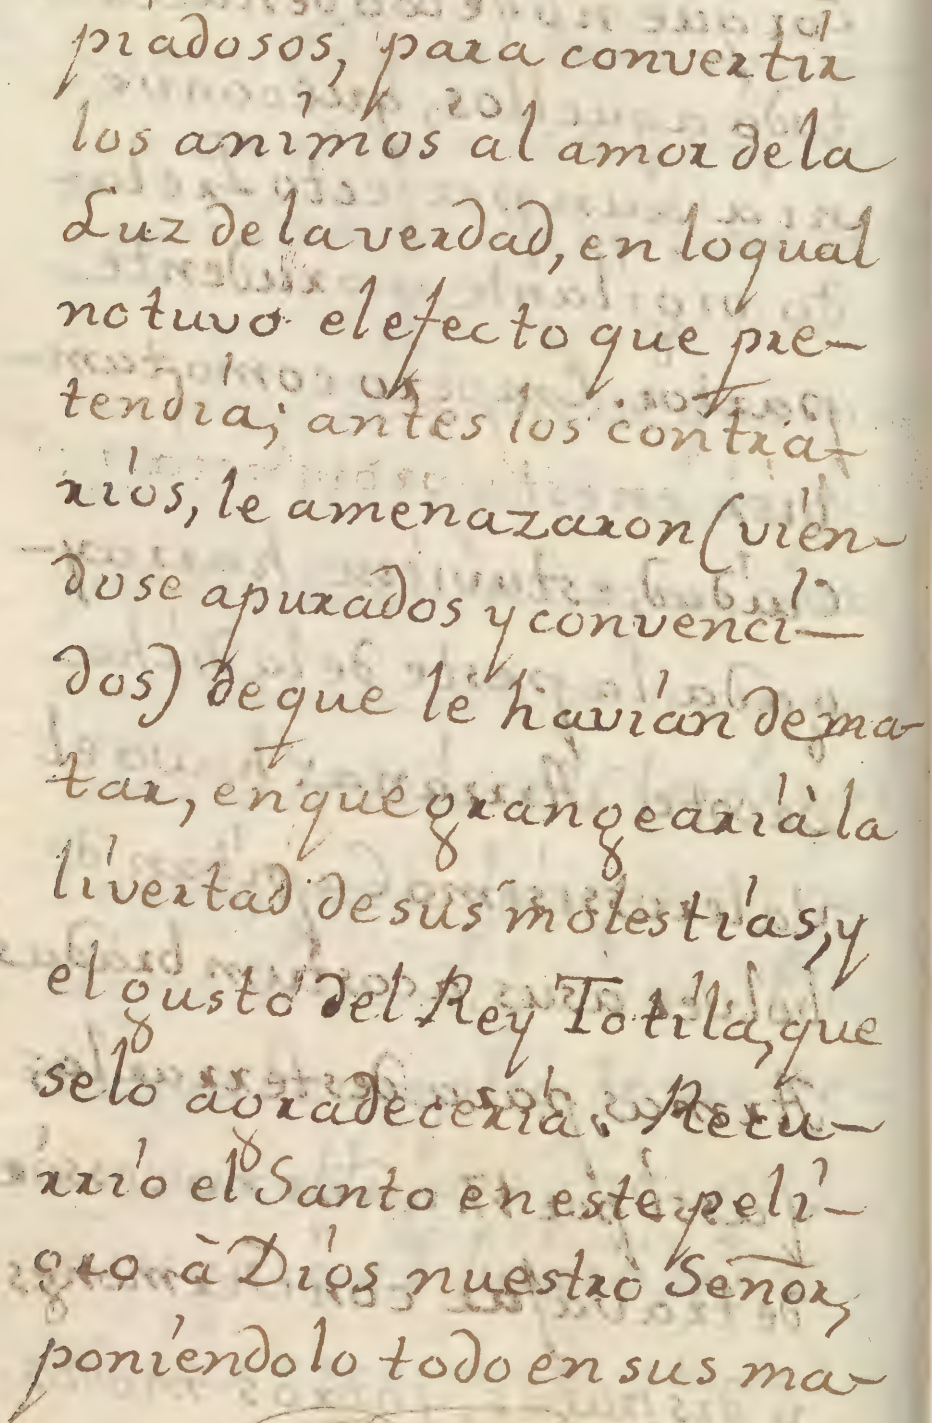 piadosos, para convertir
los animos al amor de la
Luz de la verdad, en lo qual
no tuvo el efecto que pre-
tendia; antes los contra-
rios, le amenazaron (vien-
dose apurados y convenci-
dos) de que le havian de ma-
tar, en que grangearia la
livertad de sus molestias, y
el gusto del Rey Totila, que
se lo agradeceria. Recu-
rrio el Santo en este peli-
gro à Dios nuestro Señor,
poniendolo todo en sus ma-